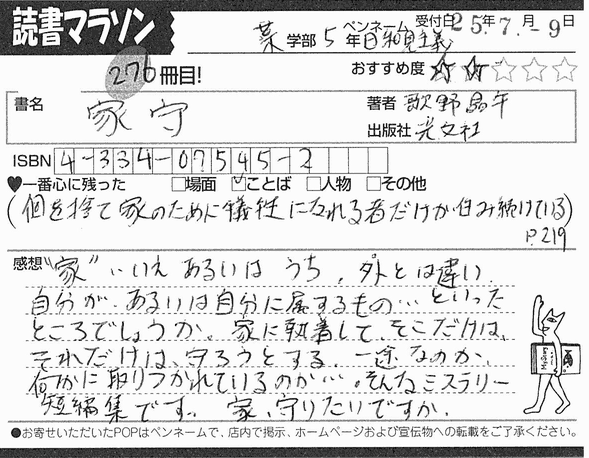 読書マラソン
薬学部 5年 ペンネーム 日和見主義 受付日 25年7月-9日
276冊目! おすすめ度 ★★☆☆☆
書名 家守
著者 歌野晶午
出版社 光文社
ISBN 4-334-07545-2
♥一番心に残った □場面 ☑ことば □人物 □その他
(個を捨て家のために犠牲になれる者だけが住み続けている)
P.219
感想 "家"…いえ あるいは うち、外とは違い、
自分が、あるいは自分に属するもの…といった
ところでしょうか。家に執着して、そこだけは、
それだけは、守ろうとする、一途なのか、
何かに取りつかれているのか…。そんなミステリー
短編集です。 家、守りたいですか。
●お寄せいただいたPOPはペンネームで、店内で掲示、ホームページおよび宣伝物への転載をご了承ください。